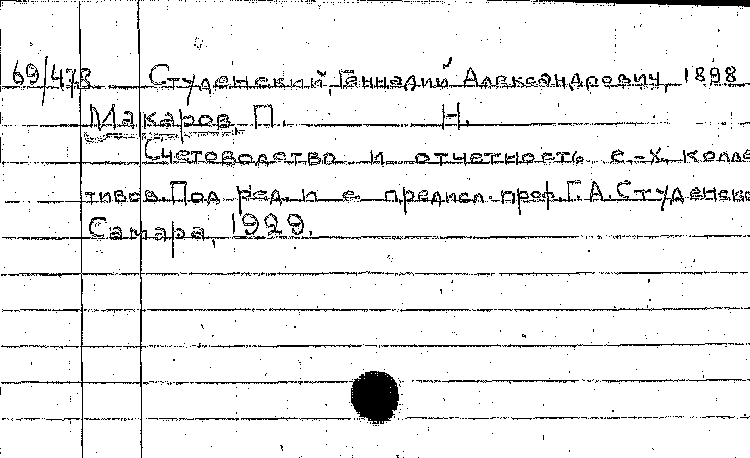 69/478 Студенский, Геннадий Александрович, 1898
Макаров, П. Н.
Счетоводство и отчетность с.-х. колле
тивов. Под ред. и с предисл. проф. Г. А. Студенско
Самара, 1929.